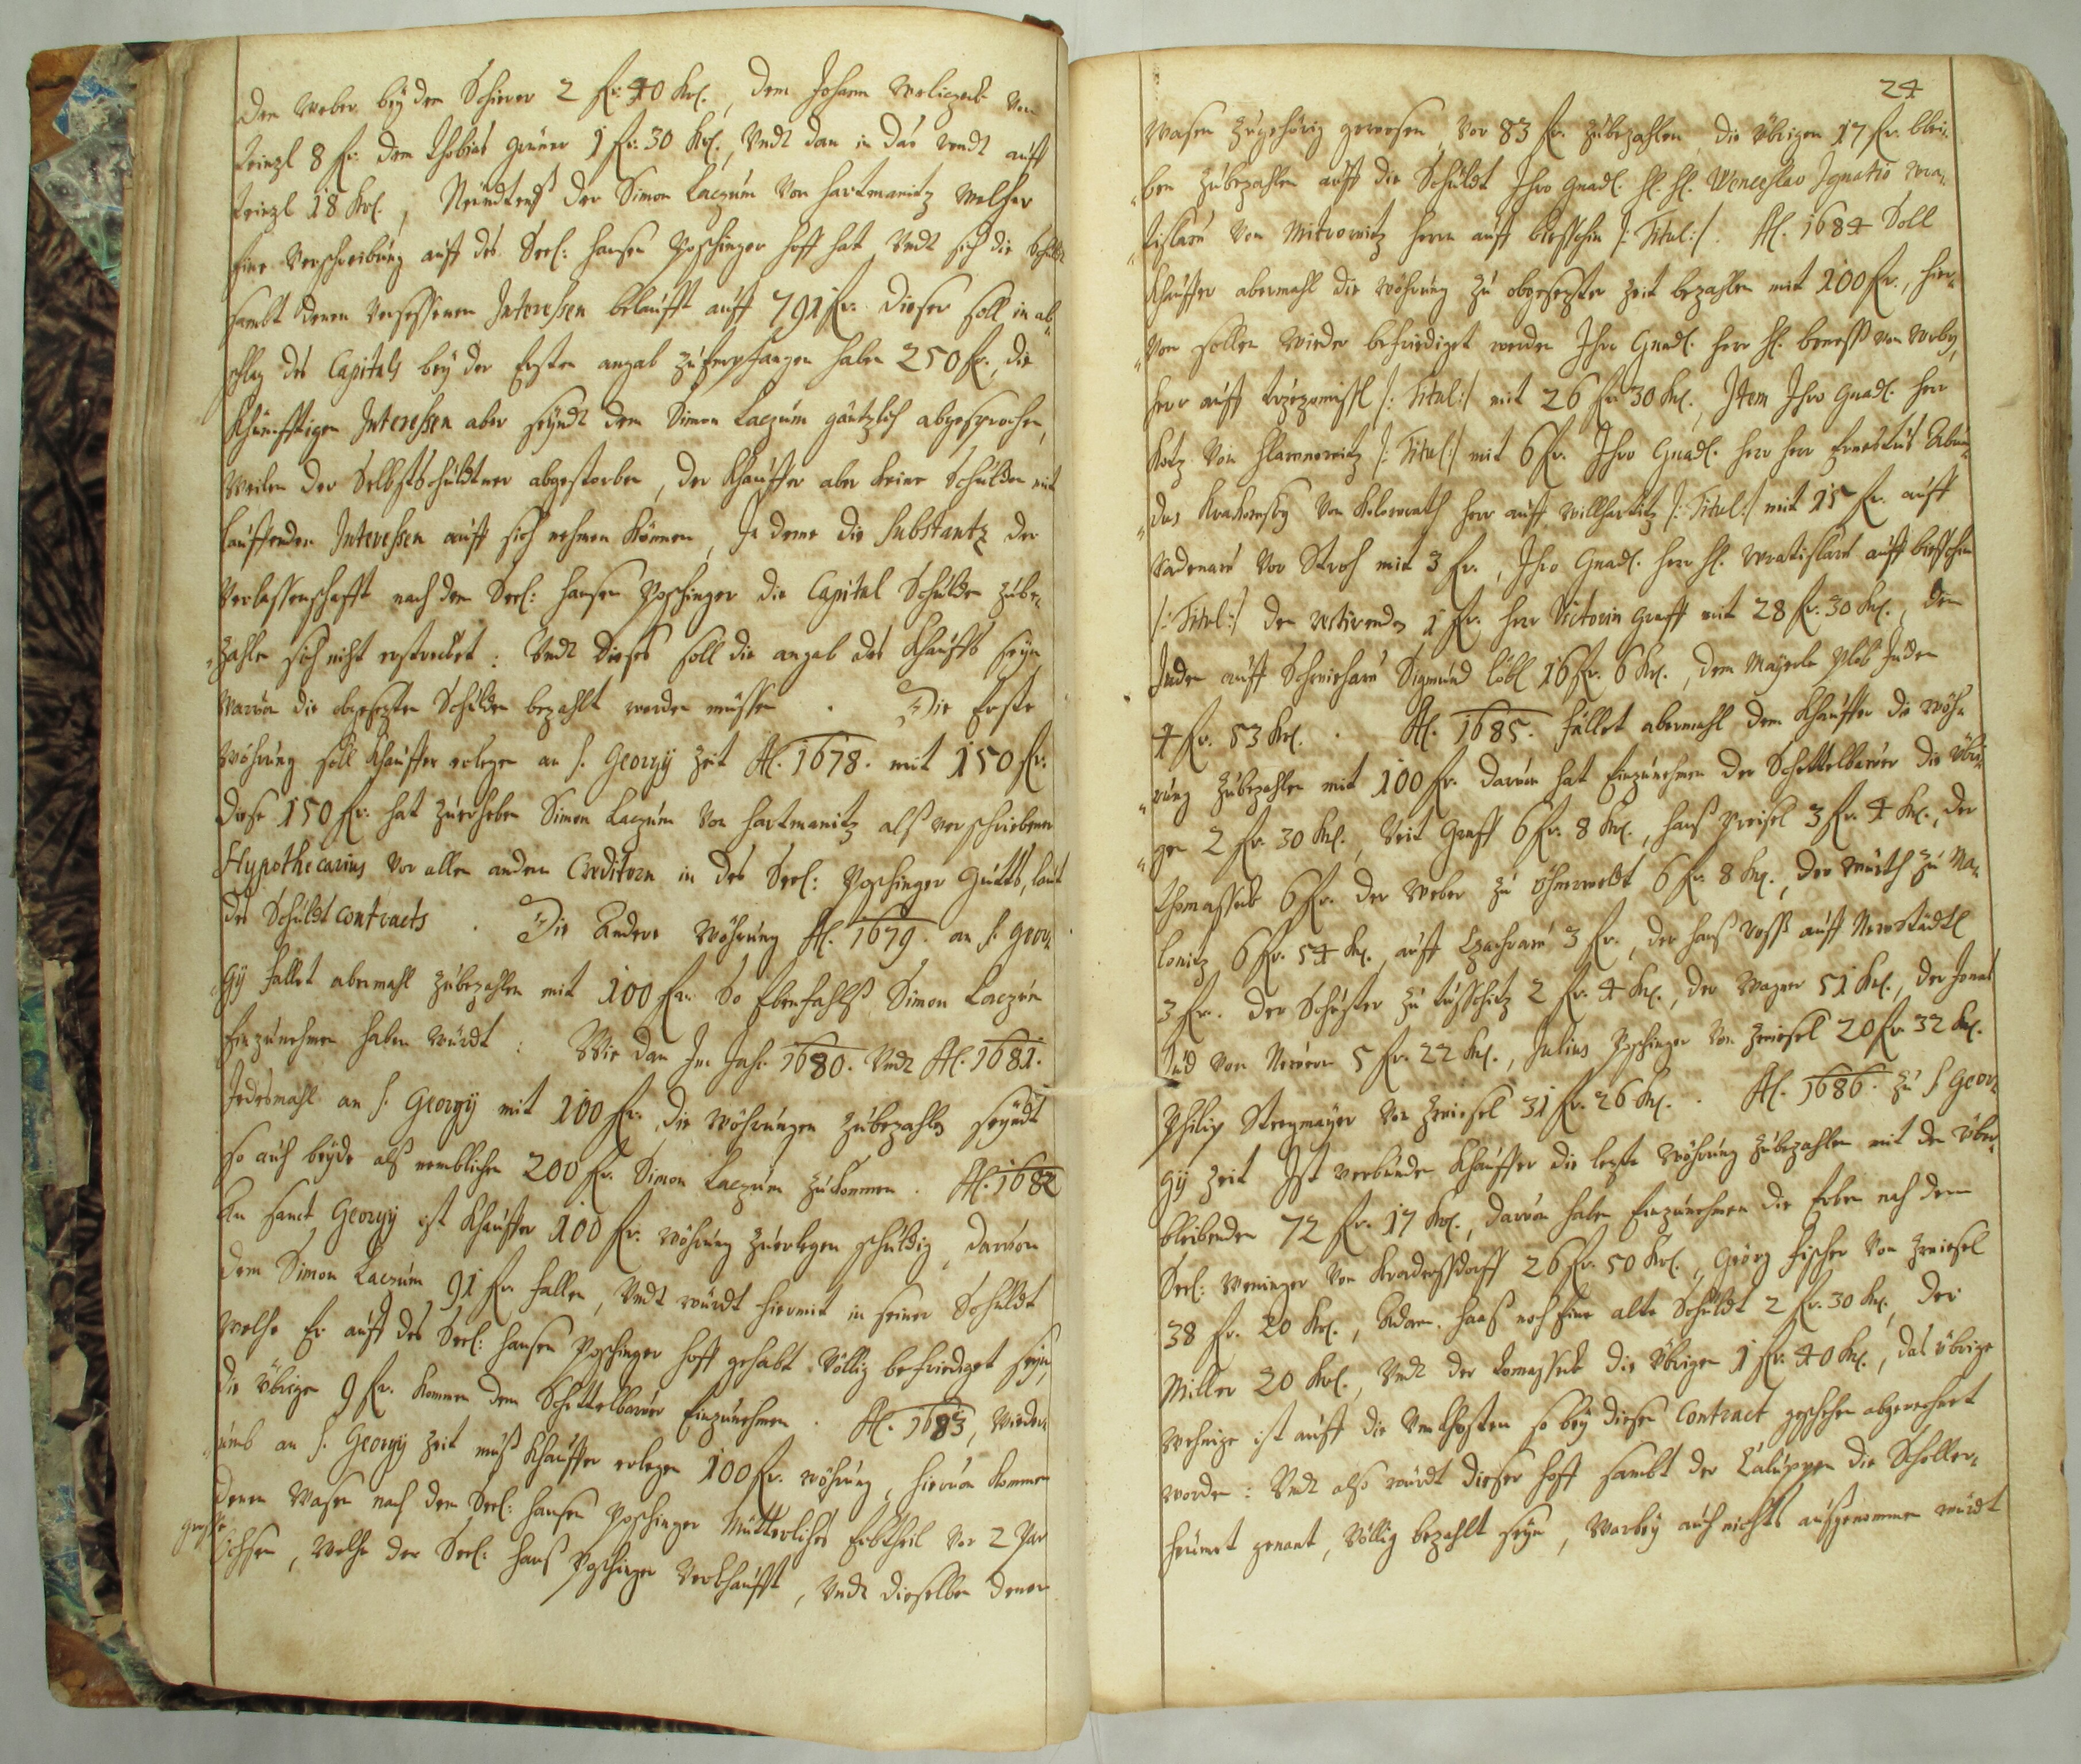 Dem Weber bey dem Schierer 2 fr: 40 Kr., dem Johann Weliczek von
Teinzl 8 fr: dem Thobias Gruner 1 fr: 30 Kr., Undt dan in das Undt auff
Teinzl 18 Kr., Neundtens der Simon Laczum von Hartmanitz welcher
Eine Verschreibung auff des Seel: Hansen Poschinger Hoff hat Undt sich die Schuldt
sambt denen Versessenen Interessen belaufft auff 791 fr: dieser soll in ab
schlag des Capitals bey der Ersten angab zu Empfangen haben 250 fr:, die
Khünfftigen Interessen aber seyndt dem Simon Laczum gäntzlich abgesprochen,
Weilen der Selbstschuldtner abgestorben, der Khauffer aber keine Schulden mit
lauffenden Interessen auff sich nehmen können, In deme die Substantz der
Verlassenschafft nach dem Seel: Hansen Poschinger die Capital Schulden zube„
„zahlen sich nicht erstrecket: Undt dieses soll die angab des Khauffs seyn
Warvon die obgesetzten Schulden bezahlt werden müssen. Die Erste
Wöhrung soll Khauffer erlegen an S. Georgy Zeit A. 1678. mit 150 fr:
diese 150 fr: hat zuerheben Simon Laczum von Hartmanitz alß verschriebener
Hypothecarius vor allen andern Creditorn in des Seel: Poschinger Gutts, laut
des Schuldt Contracts. Die Andere Wöhrung A. 1679. an S. Geor„
gy fallet abermahl zubezahlen mit 100 fr: So Ebenfahlß Simon Laczum
Einzunehmen haben würdt: Wie dan Im Jahr 1680. Undt A. 1681.
Jedesmahl an S. Georgy mit 100 fr: die Wöhrungen zubezahlen seyndt
so auch beyde alß nemblichen 200 fr: Simon Laczum zukommen. A. 1682
An Sanct Georgy ist Khauffer 100 fr: Wöhrung zuerlegen schuldig, darvon
dem Simon Laczum 91 fr: fallen, Undt würdt hiermit in seiner Schuldt
Welche Er auff des Seel: Hansen Poschinger Hoff gehabt Völlig befriediget seyn,
die Übrigen 9 fr: kommen dem Schettelbauer Einzunehmen. A. 1683, Wieder„
„umb an S. Georgy Zeit muß Khauffer erlegen 100 fr: Wöhrung, hiervon kommen
denen Wasen nach dem Seel: Hansen Poschinger Mütterliches Erbtheil vor 2 Par
grosse Ochsen, welche der Seel: Hanß Poschinger Verkhaufft, Undt dieselben denen
24
Wasen zugehörig gewesen, vor 83 fr: zubezahlen, die Übrigen 17 fr: blei„
„ben zubezahlen auff die Schuldt Ihro Gnad. H. H. Wenceslao Ignatio Wra„
„tislaw von Mitrowitz Herrn auff /: Titul :/. A. 1684 Soll
Khauffer abermahl die Wöhrung zu obgesezter Zeit bezahlen mit 100 fr:, hier„
„von sollen wieder befriediget werden Ihro Gnad. Herr H. von
Herr auff /: Titul :/ mit 26 fr: 30 Kr., Item Ihro Gnad. Herr
Kotz von /: Titul :/ mit 6 fr: Ihro Gnad. Herr Herr Ernestus
„das Krakowsky von Kolowrath Herr auff Willhartitz /: Titul :/ mit 15 fr: auff
vor Stroh mit 3 fr:, Ihro Gnad. Herr H. Wratislaw auff
/: Titul :/ den 1 fr: Herr Victorin Graff mit 28 fr: 30 Kr., dem
Juden auff Sigmund Löbl 16 fr: 6 Kr., dem Juden
4 fr: 53 Kr. A. 1685. fallet abermahl dem Khauffer die Wöh„
„rung zubezahlen mit 100 fr: darvon hat Einzunehmen der Schettelbauer die Übri„
„gen 2 fr: 30 Kr., Veit Graff 6 fr: 8 Kr., Hanß Preisel 3 fr: 4 Kr., der
Thomassek 6 fr: der Weber zu 6 fr: 8 Kr., der Würth zu Ma„
lonitz 6 fr: 54 Kr., auff 3 fr:, der Hanß auff Newstädtl
3 fr: der Schuster zu 2 fr: 4 Kr., der Wagner 51 Kr., der Jonas
Jud von 5 fr: 22 Kr., Julius Poschinger von Zwiesel 20 fr: 32 Kr.
Philip von Zwiesel 31 fr: 26 Kr. A. 1686. zu S. Geor„
gy Zeit Ist verbunden Khauffer die lezte Wöhrung zubezahlen mit den Über„
bleibenden 72 fr: 17 Kr., darvon haben Einzunehmen die Erben nach dem
Seel: Weninger von 26 fr: 50 Kr., Geörg Fischer von Zwiesel
38 fr: 20 Kr., Adam Haaß noch Eine alte Schuldt 2 fr: 30 Kr., der
Miller 20 Kr., Undt der Tomassek die Übrigen 1 fr: 40 Kr., das übrige
Wehnige ist auff die Unkhosten so bey diesen Contract geschehen abgerechnet
worden: Undt also würdt dieser Hoff sambt der Caluppen die
genant, Völlig bezahlt seyn, Warbey auch nichts außgenommen würdt